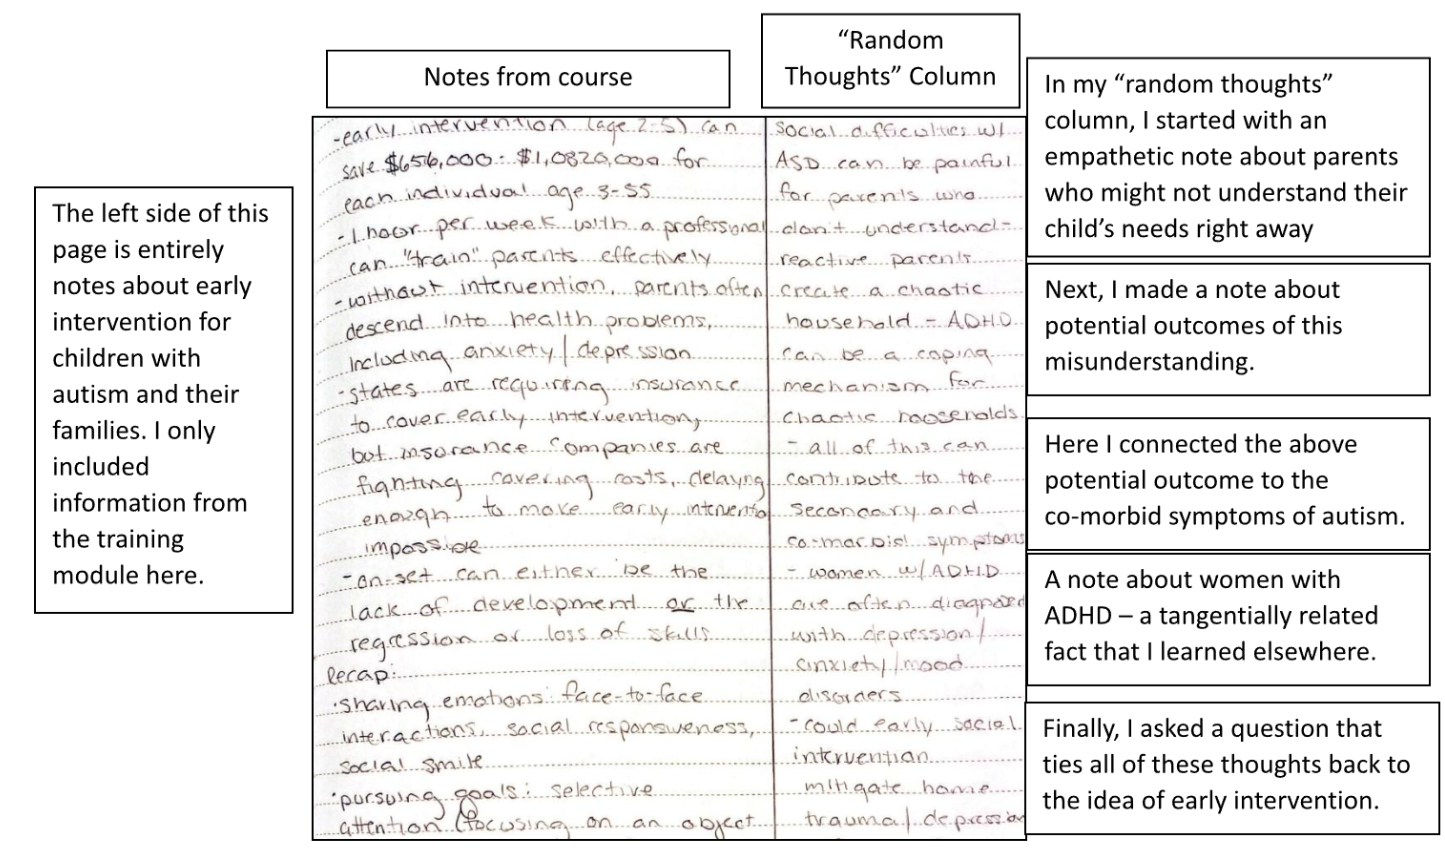 Notes from course
"Random
Thoughts" Column
The left side of this
page is entirely
notes about early
intervention for
children with
autism and their
families. I only
included
information from
the training
module here.
-early intervention (age 2-5) can
save $656,000 - $1,0820,000 for
each individual age 3-55
-1 hour per week with a professional
can "train" parents effectively
-without intervention, parents often
descend into health problems,
including anxiety/depression
-states are requiring insurance
to cover early intervention,
but insurance companies are
fighting covering costs, delaying
enough to make early interventio
impossible
-on-set can either be the
lack of development or the
regression or loss of skills
Recap:
·sharing emotions: face-to-face
interactions, social responsiveness,
social smile
·pursuing goals: selective
attention (focusing on an object
social difficulties w/
ASD can be painful
for parents who
don't understand-
reactive parents
create a chaotic
household - ADHD
can be a coping
mechanism for
chaotic households
- all of this can
contribute to the
secondary and
co-morbid symptoms
- women w/ADHD
are often diagnosed
with depression/
anxiety/mood
disorders
- could early social
intervention
mitigate home
trauma/depression
In my "random thoughts"
column, I started with an
empathetic note about parents
who might not understand their
child's needs right away
Next, I made a note about
potential outcomes of this
misunderstanding.
Here I connected the above
potential outcome to the
co-morbid symptoms of autism.
A note about women with
ADHD – a tangentially related
fact that I learned elsewhere.
Finally, I asked a question that
ties all of these thoughts back to
the idea of early intervention.